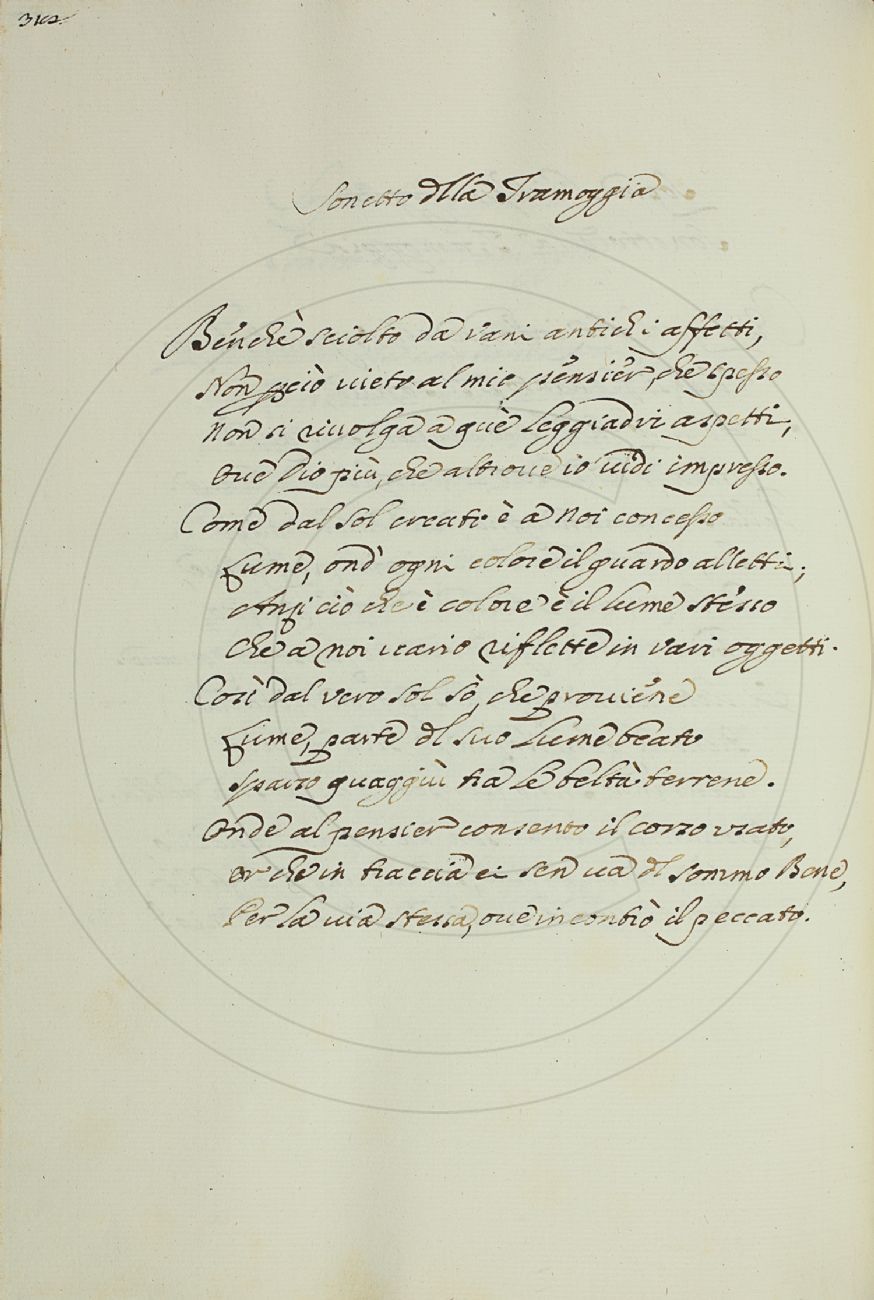 312
Sonetto dlla Tramoggia
Benchè sciolto da vani antichi affetti,
Non perciò vieto al mio pensier, che spesso
Non si rivolga a què leggiadri aspetti,
Ove Dio più, che altrove io vidi impresso.
Come dal sol creato è a noi concesso
Lume, ond' ogni colore il guardo alletti;
Anzi ciò che è colore è il lume stesso
Che a noi vario riflette in vari oggetti.
Così dal vero sol sò, che proviene
Lume, parte dl suo lume beato
sparso quaggiù tra le beltà terrene.
Onde al pensier consento il corso usato,
or che in traccia ei sen va dl sommo Bene,
Per la via stessa, ove incontrò il peccato.